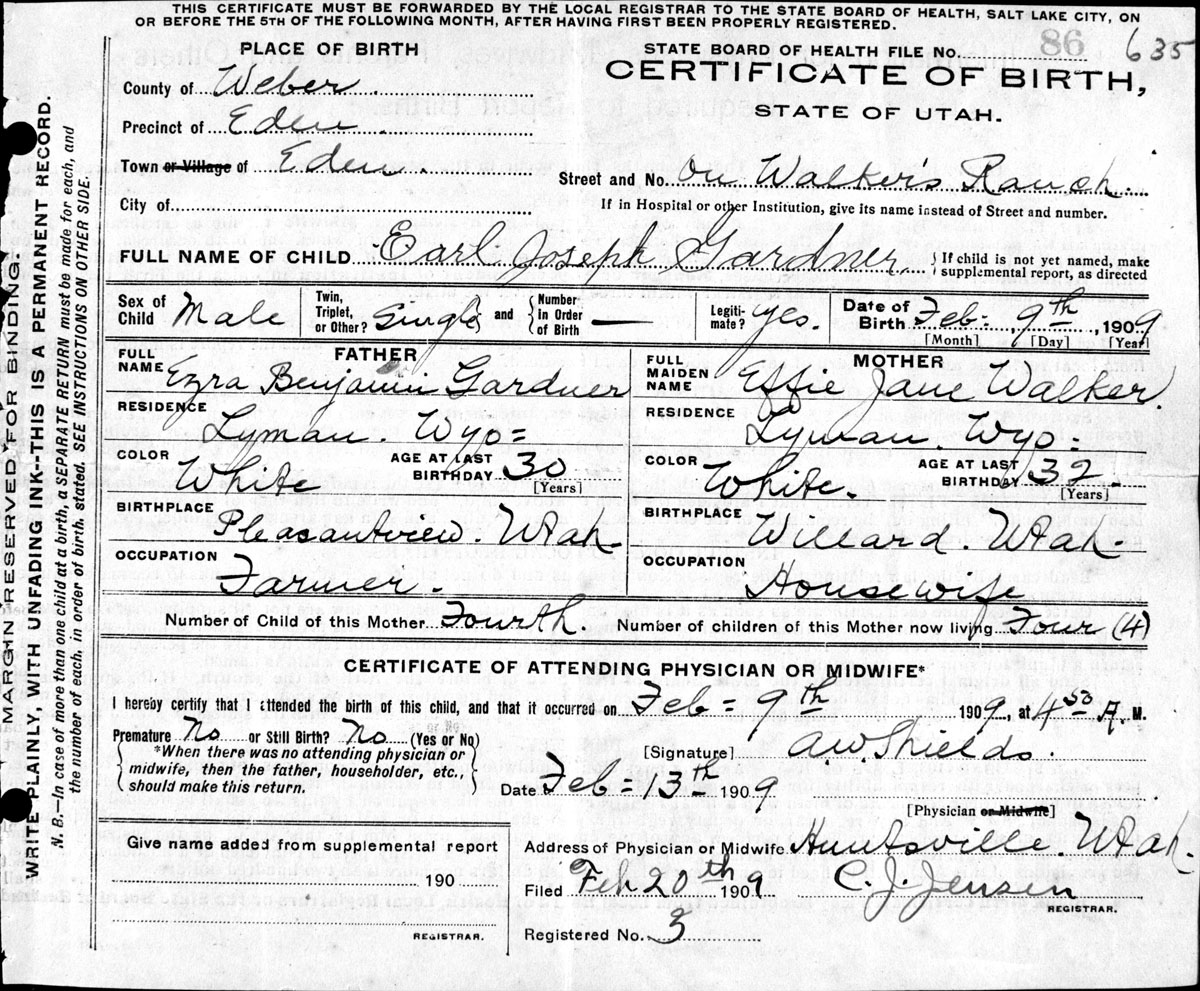 THIS CERTIFICATE MUST BE FORWARDED BY THE LOCAL REGISTRAR TO THE STATE BOARD OF HEALTH, SALT LAKE CITY, ON
OR BEFORE THE 5TH OF THE FOLLOWING MONTH, AFTER HAVING FIRST BEEN PROPERLY REGISTERED.
MARGIN RESERVED FOR BINDING.
WRITE PLAINLY, WITH UNFADING INK--THIS IS A PERMANENT RECORD.
N. B.—In case of more than one child at a birth, a SEPARATE RETURN must be made for each, and
the number of each, in order of birth, stated. SEE INSTRUCTIONS ON OTHER SIDE.
PLACE OF BIRTH
County of Weber.
Precinct of Eden.
Town or Village of Eden.
City of
STATE BOARD OF HEALTH FILE No. 86 635
CERTIFICATE OF BIRTH,
STATE OF UTAH.
Street and No. On Walker's Ranch.
If in Hospital or other Institution, give its name instead of Street and number.
FULL NAME OF CHILD Earl Joseph Gardner. If child is not yet named, make
supplemental report, as directed
Sex of Child Male Twin, Triplet, or Other? Single and Number in Order of Birth — Legitimate? yes. Date of Birth Feb= 9th, 1909
[Month] [Day] [Year]
FATHER
FULL NAME Ezra Benjamin Gardner
RESIDENCE Lyman. Wyo=
COLOR White AGE AT LAST BIRTHDAY 30 [Years]
BIRTHPLACE Pleasantview. Utah-
OCCUPATION Farmer.
MOTHER
FULL MAIDEN NAME Effie Jane Walker.
RESIDENCE Lyman. Wyo=
COLOR White. AGE AT LAST BIRTHDAY 32. [Years]
BIRTHPLACE Willard. Utah-
OCCUPATION Housewife
Number of Child of this Mother Fourth. Number of children of this Mother now living Four (4)
CERTIFICATE OF ATTENDING PHYSICIAN OR MIDWIFE*
I hereby certify that I attended the birth of this child, and that it occurred on Feb= 9th 1909, at 4 50 A. M.
Premature No or Still Birth? No (Yes or No)
*When there was no attending physician or
midwife, then the father, householder, etc.,
should make this return.
[Signature] A.W. Shields.
Date Feb=13th 1909
[Physician or Midwife]
Give name added from supplemental report
190
REGISTRAR.
Address of Physician or Midwife Huntsville. Utah.
Filed Feb 20th 1909 C. J. Jensen
REGISTRAR.
Registered No. 3